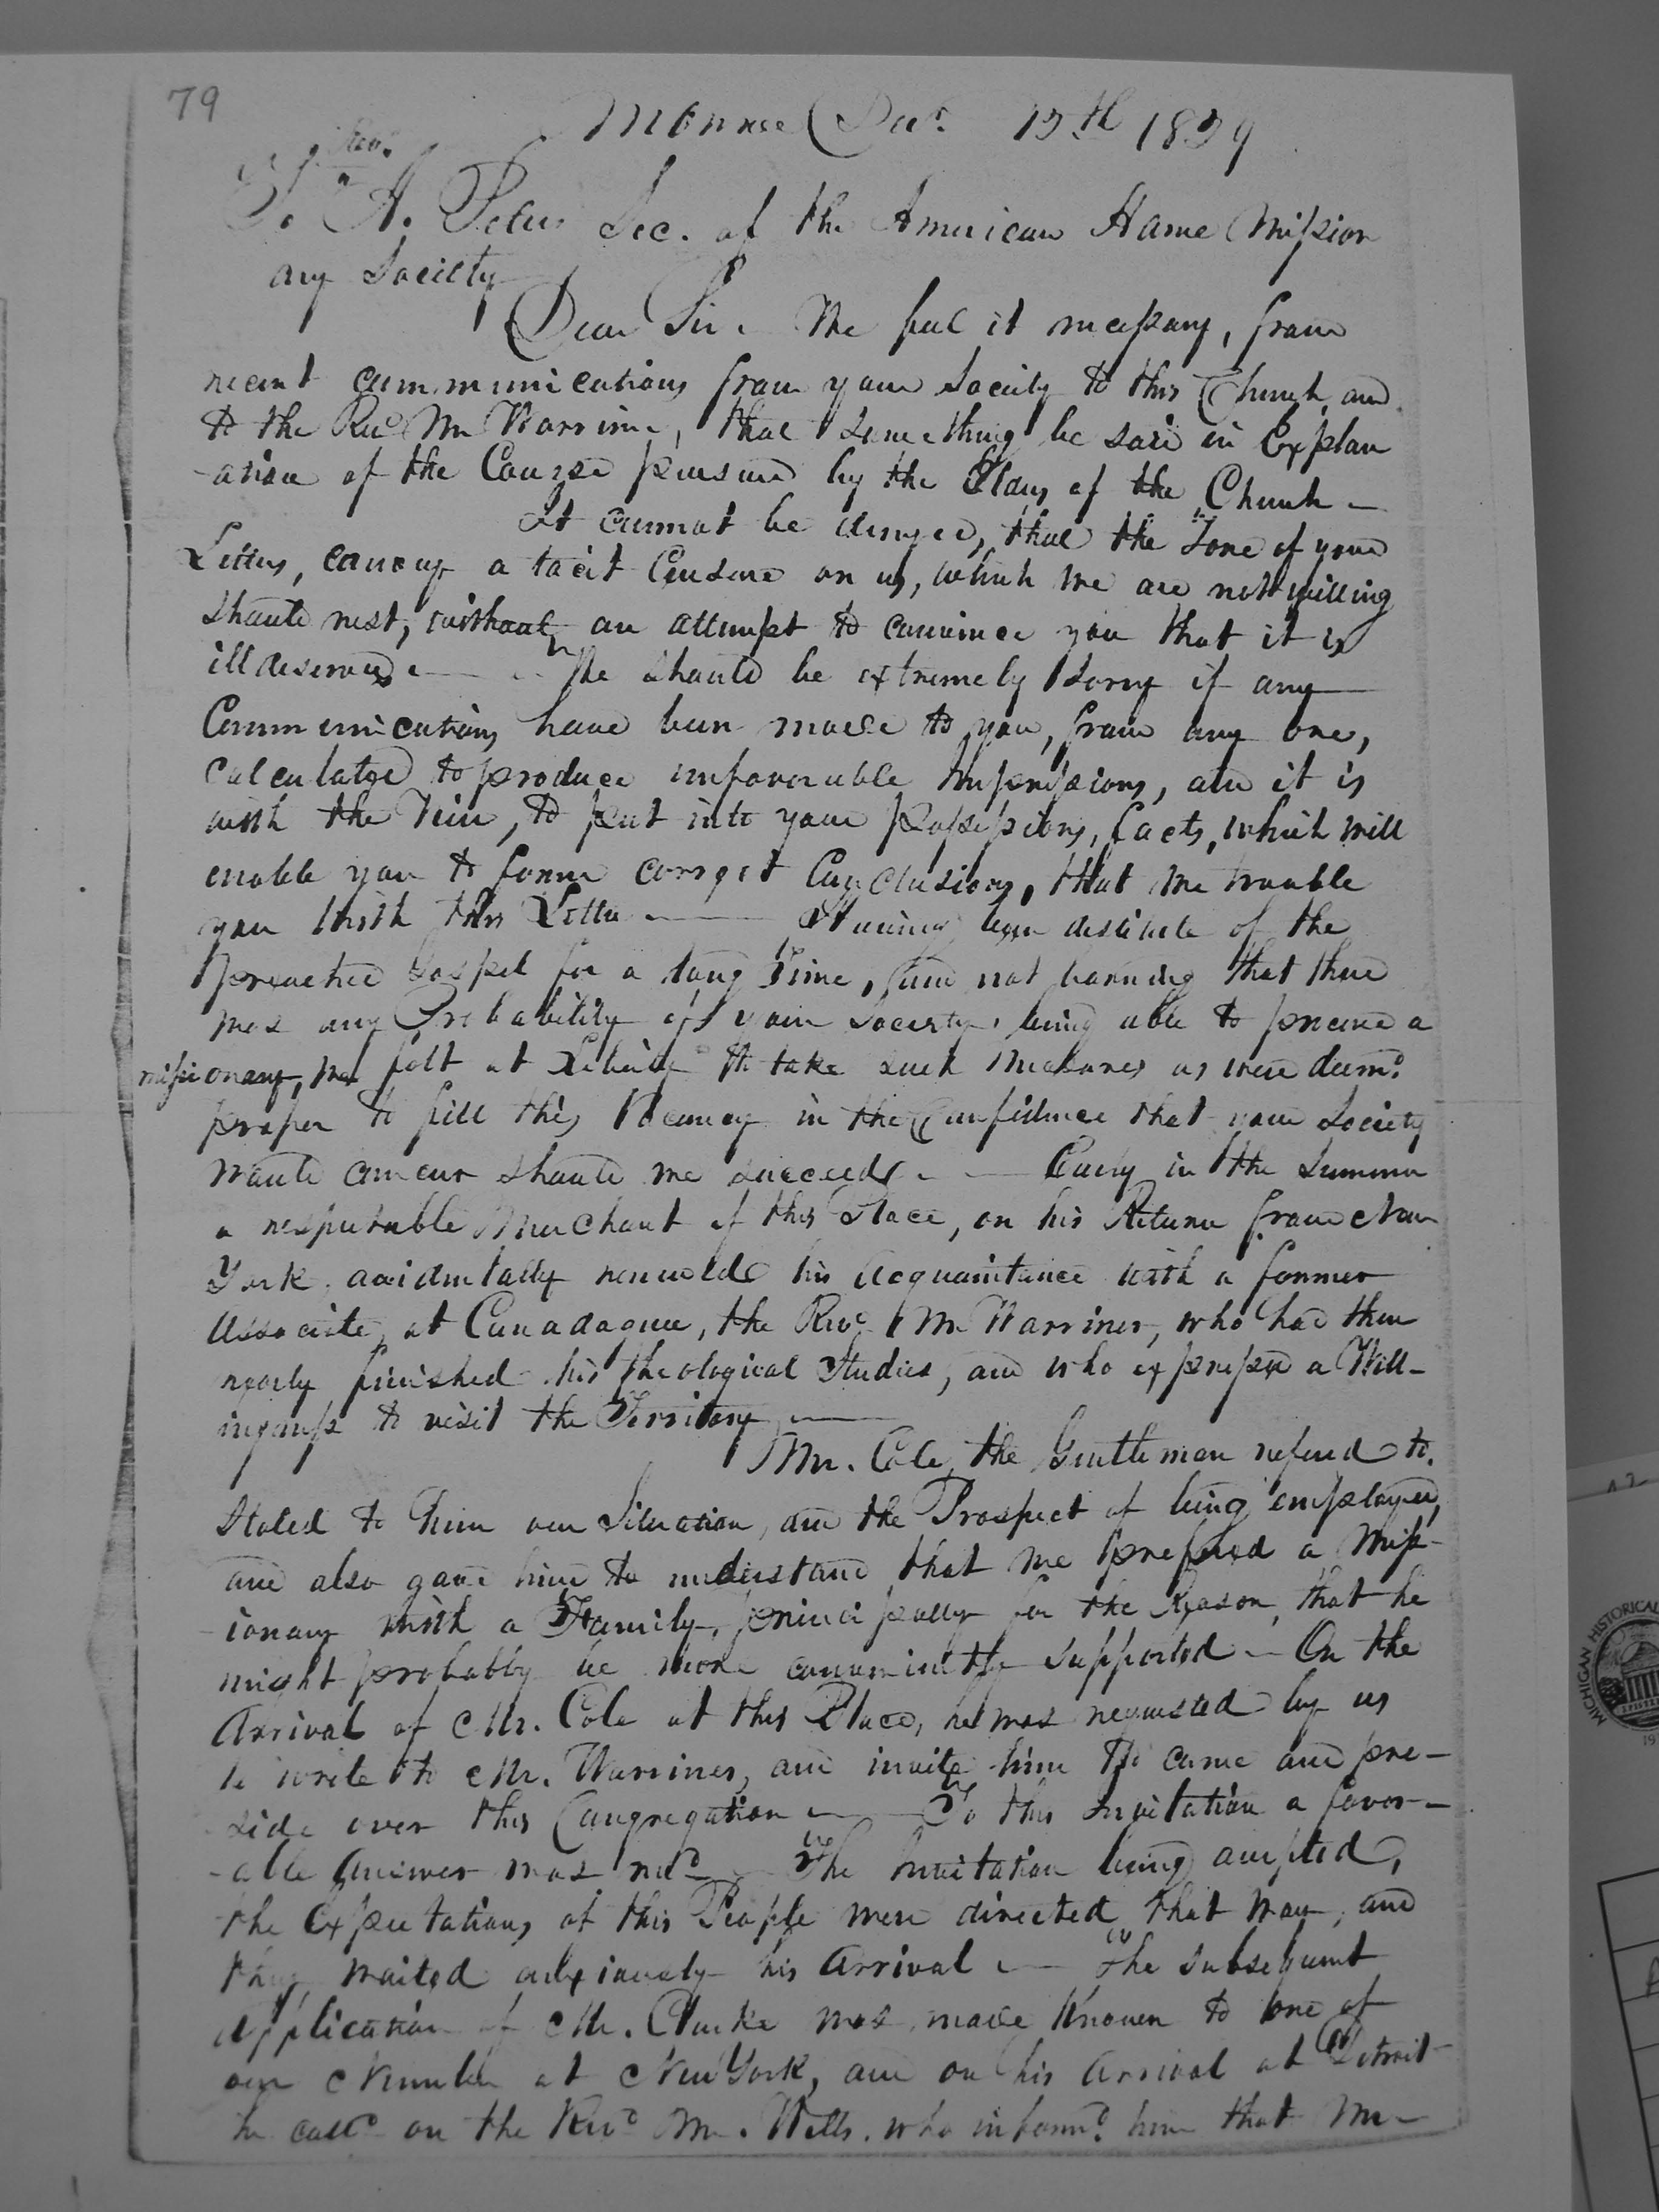 79
Monroe Decr. 15th 1829
Revd.
To A. Peters Sec. of the American Home Mission
ary Society
Dear Sir. We feel it necessary, from
recent communications from your Society to this Church and
to the Revd Mr Warriner, that something be said in Explan
-ation of the Course pursued by the Elders of the Church —
It cannot be denyed, that the Tone of your
Letters, convey a tacit Censure on us, which we are not willing
should rest, without an attempt to convince you that it is
ill deserved — We should be extremely sorry if any
Communications have been made to you, from any one,
calculated to produce unfavourable Impressions, and it is
with the View, to put into your possession, facts, which will
enable you to form correct Conclusions, that we trouble
you with this Letter — Having been destitute of the
preached Gospel for a long Time, and not learning that there
was any Probability of your Society, being able to procure a
missionary, we felt at Liberty to take such measures as were deemd.
proper to fill this Vacancy in the Confidence that your Society
would concur should we succeed — Early in the Summer
a respectable Merchant of this Place, on his Return from New
York, accidentally renewed his Acquaintance with a former
Associate, at Canadagua, the Revd Mr Warriner, who had then
nearly finished his theological Studies, and who expressed a Will-
ingness to visit the Territory —
Mr. Cole, the Gentleman refered to,
Stated to him our Situation, and the Prospect of being employed,
and also gave him to understand that we prefered a Miss-
ionary with a Family, principally for the Reason, that he
might probably be more conveniently supported — On the
Arrival of Mr. Cole at this Place, he was requested by us
to write to Mr. Warriner, and invite him to come and pre-
side over this Congregation — To this Invitation a favor-
-able Answer was recd — The Invitation being accepted,
the Expectations of this People were directed that way, and
they waited anxiously his Arrival — The subsequent
Application of Mr. Clarke was made known to one of
our Number at New York, and on his Arrival at Detroit
he calld on the Revd Mr. Wells, who informd. him that Mr
MICHIGAN HISTORICAL